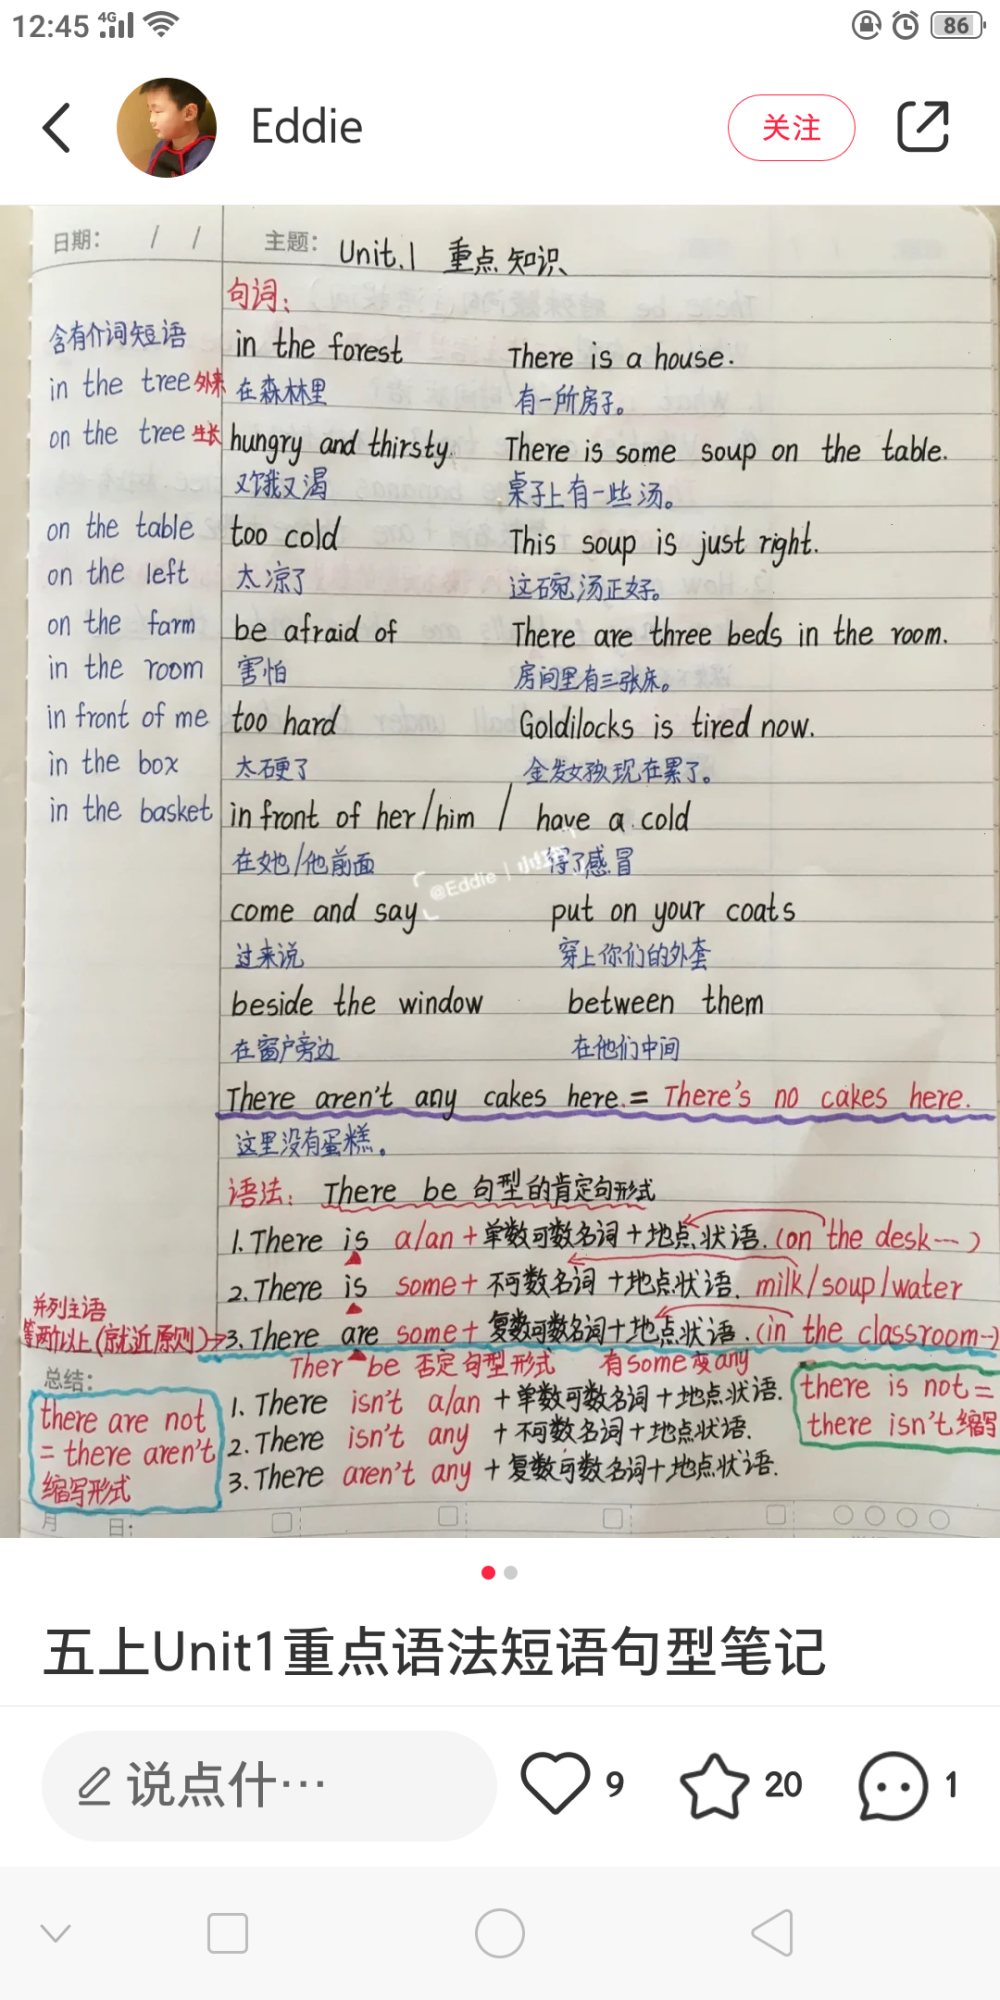 12:45 4G 86
Eddie 关注
日期: / / 主题: Unit.1 重点知识
句词:
含有介词短语
in the tree 外来
on the tree 生长
on the table
on the left
on the farm
in the room
in front of me
in the box
in the basket
in the forest There is a house.
在森林里 有一所房子。
hungry and thirsty. There is some soup on the table.
又饿又渴 桌子上有一些汤。
too cold This soup is just right.
太凉了 这碗汤正好。
be afraid of There are three beds in the room.
害怕 房间里有三张床。
too hard Goldilocks is tired now.
太硬了 金发女孩现在累了。
in front of her/him / have a cold
在她/他前面 得了感冒
@Eddie
come and say put on your coats
过来说 穿上你们的外套
beside the window between them
在窗户旁边 在他们中间
There aren't any cakes here. = There's no cakes here.
这里没有蛋糕。
语法: There be 句型的肯定句形式
1. There is a/an + 单数可数名词 + 地点状语. (on the desk---)
2. There is some + 不可数名词 + 地点状语. milk/soup/water
并列主语
等两个以上 (就近原则)→ 3. There are some + 复数可数名词 + 地点状语. (in the classroom--)
Ther be 否定句型形式 有some变any
总结:
there are not
= there aren't
缩写形式
1. There isn't a/an + 单数可数名词 + 地点状语.
2. There isn't any + 不可数名词 + 地点状语.
3. There aren't any + 复数可数名词 + 地点状语.
there is not =
there isn't 缩写
月 日:
五上Unit1重点语法短语句型笔记
说点什… 9 20 1